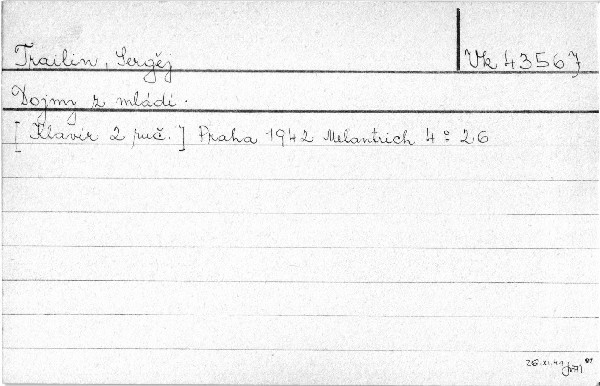 Trailin, Sergěj
Vk 43567
Dojmy z mládí.
[Klavír 2 ruč.] Praha 1942 Melantrich 4° 26